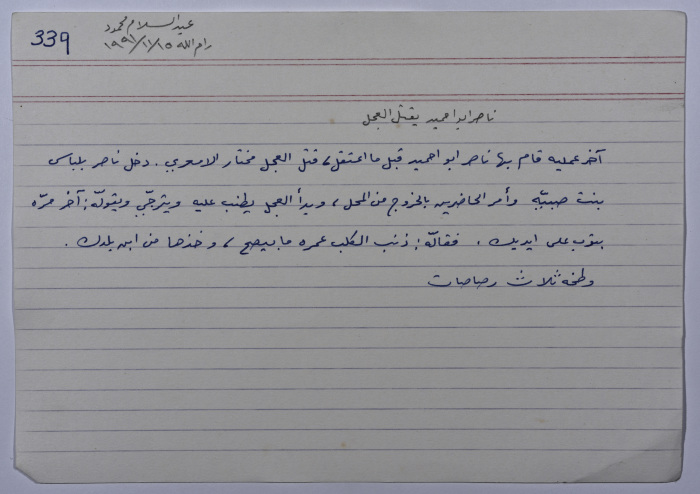 339
عبدالسلام محمود
رام الله ١٩٩١/١١/١٥
ناصر ابو احميد يقتل العجل
آخر عمليه قام بها ناصر ابو احميد قبل ما اعتقل، قتل العجل مختار الامعري. دخل ناصر بلباس
بنت صبيّه وأمر الحاضرين بالخروج من المحل، وبدأ العجل يطنب عليه ويترجّى ويقولّه: آخر مرّه
بتوب على ايديك. فقالّه: ذنب الكلب عمره ما بيصح، وخذها من ابن بلدك.
وطخه ثلاث رصاصات